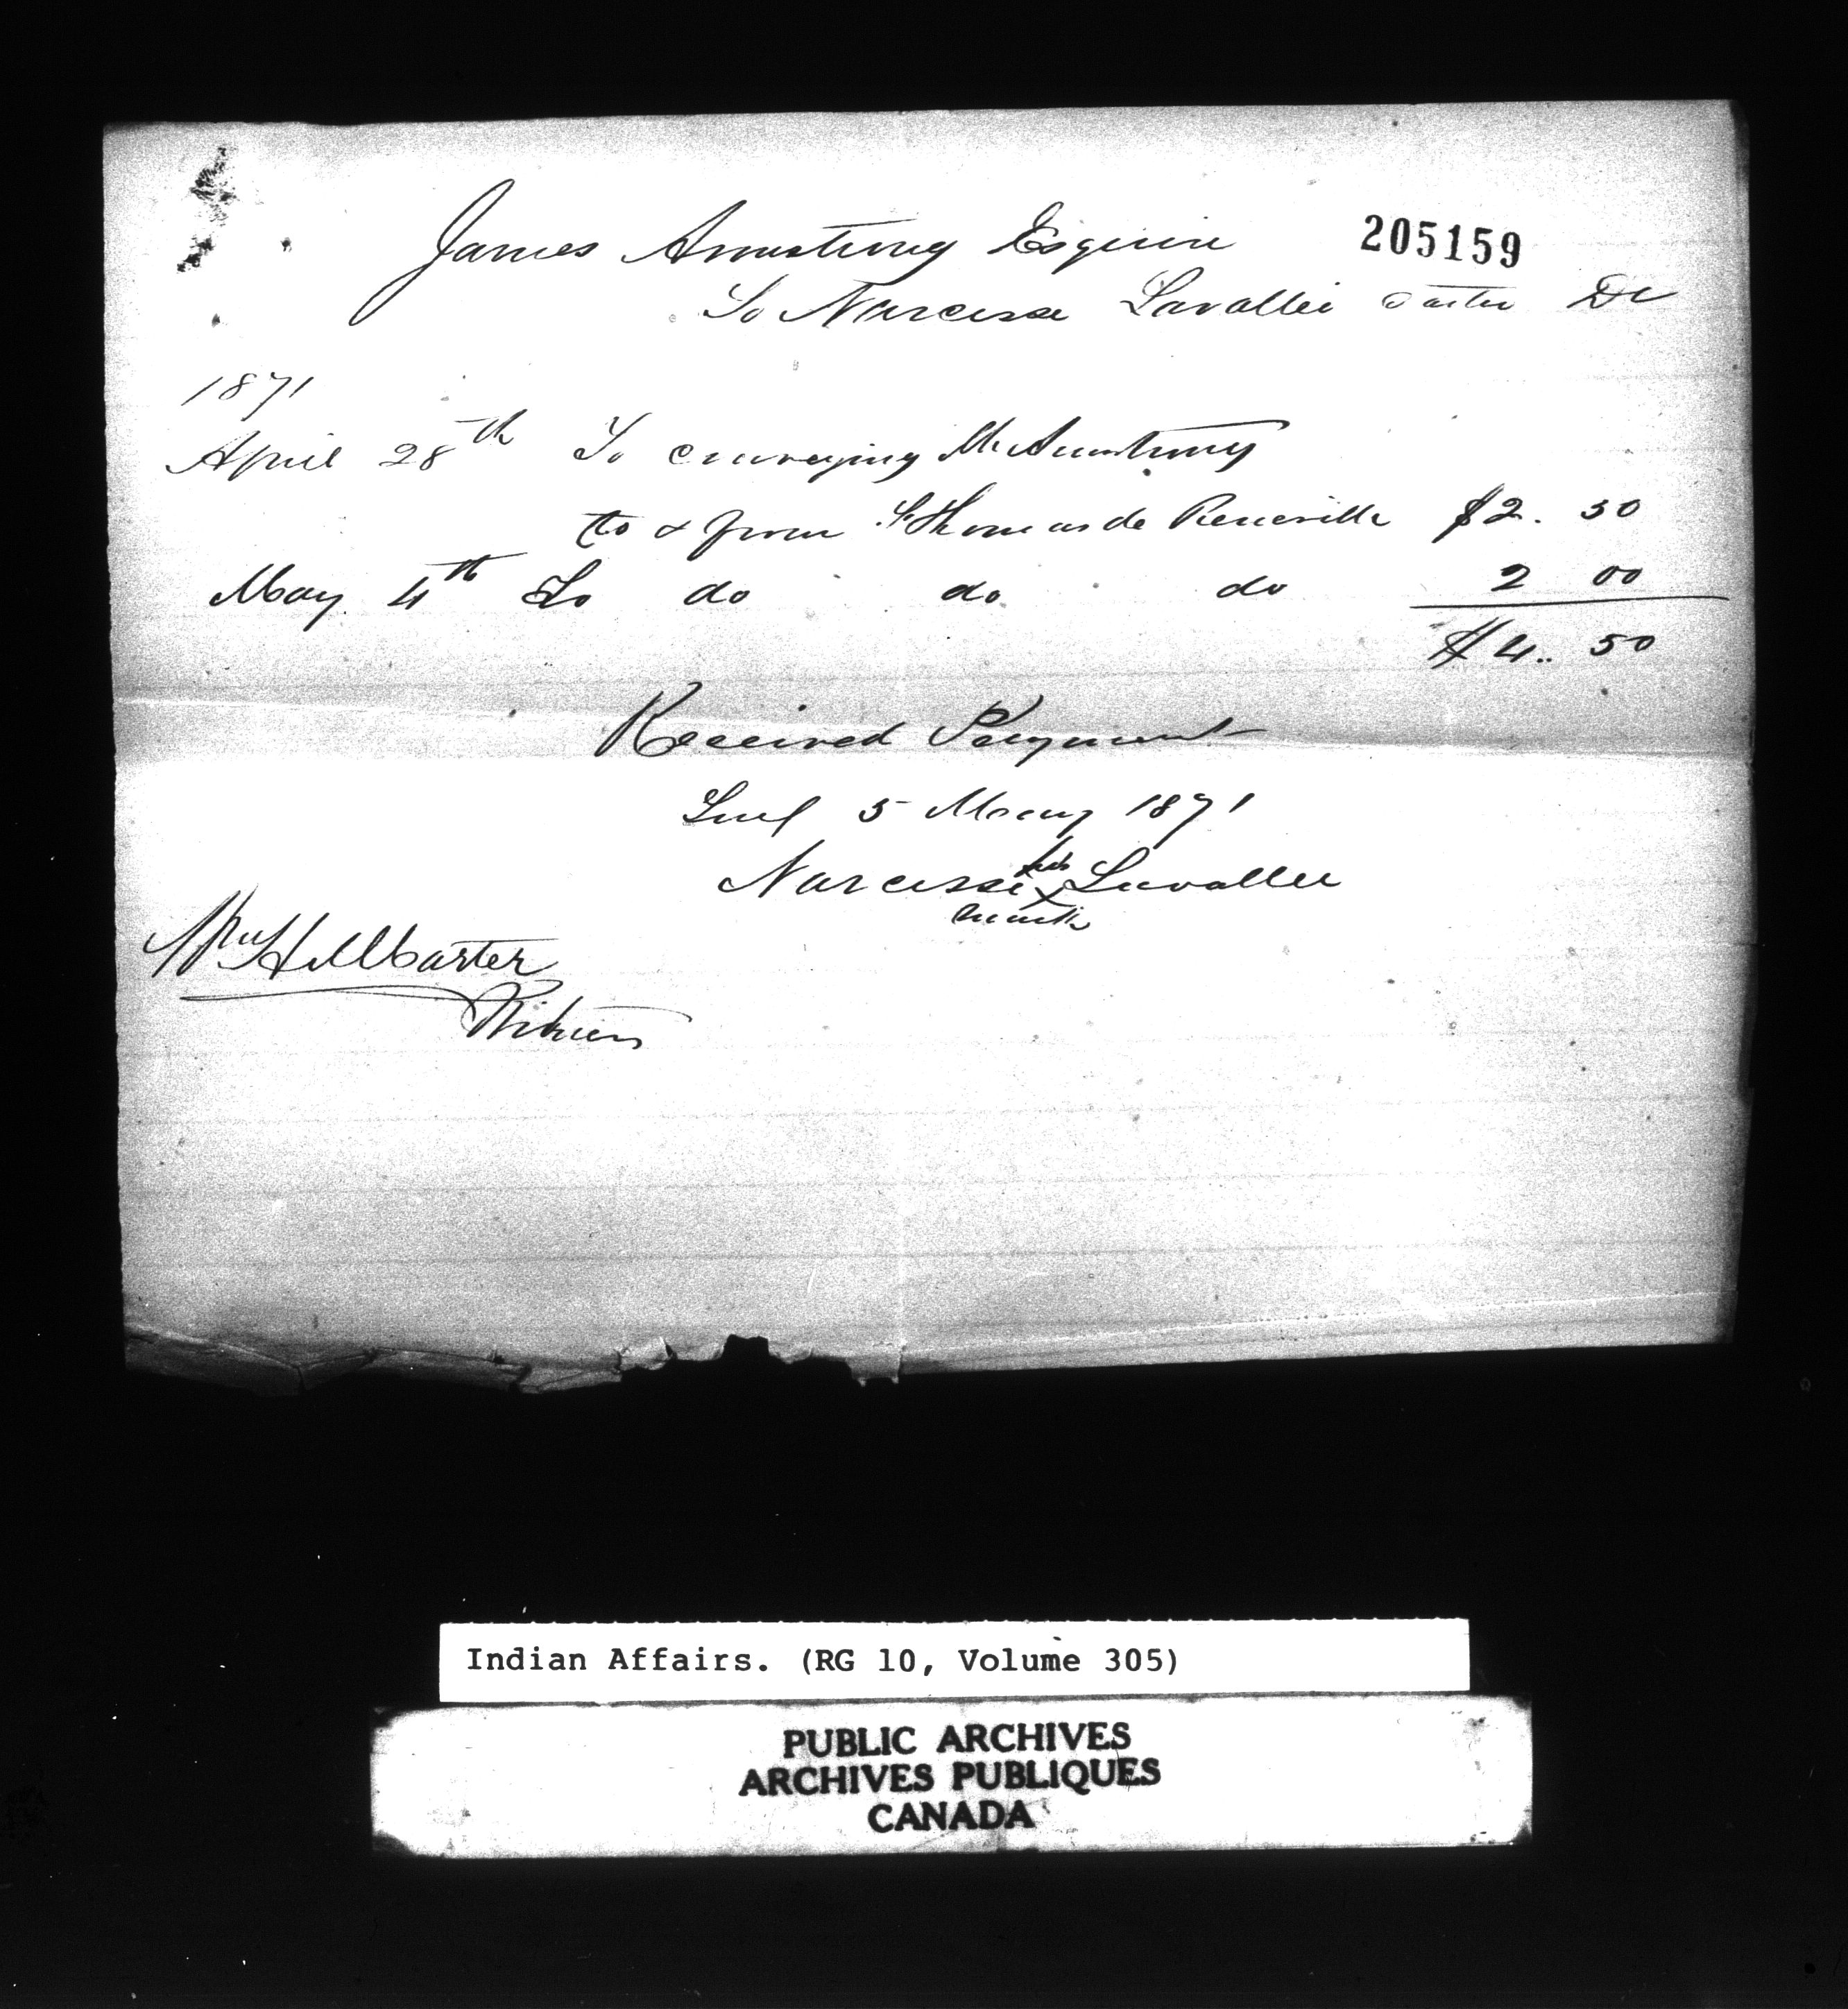 James Armstrong Esquire 205159
To Narcisse Lavallée Carter Dr
1871
April 28th To conveying Mr Armstrong
to & from St Thomas de Pierreville $2. 50
May 4th To do do do 2 00
$4.. 50
Received Payment
Sorel 5 May 1871
Narcisse his X Lavallee
mark
Carter
Witness
Indian Affairs. (RG 10, Volume 305)
PUBLIC ARCHIVES
ARCHIVES PUBLIQUES
CANADA